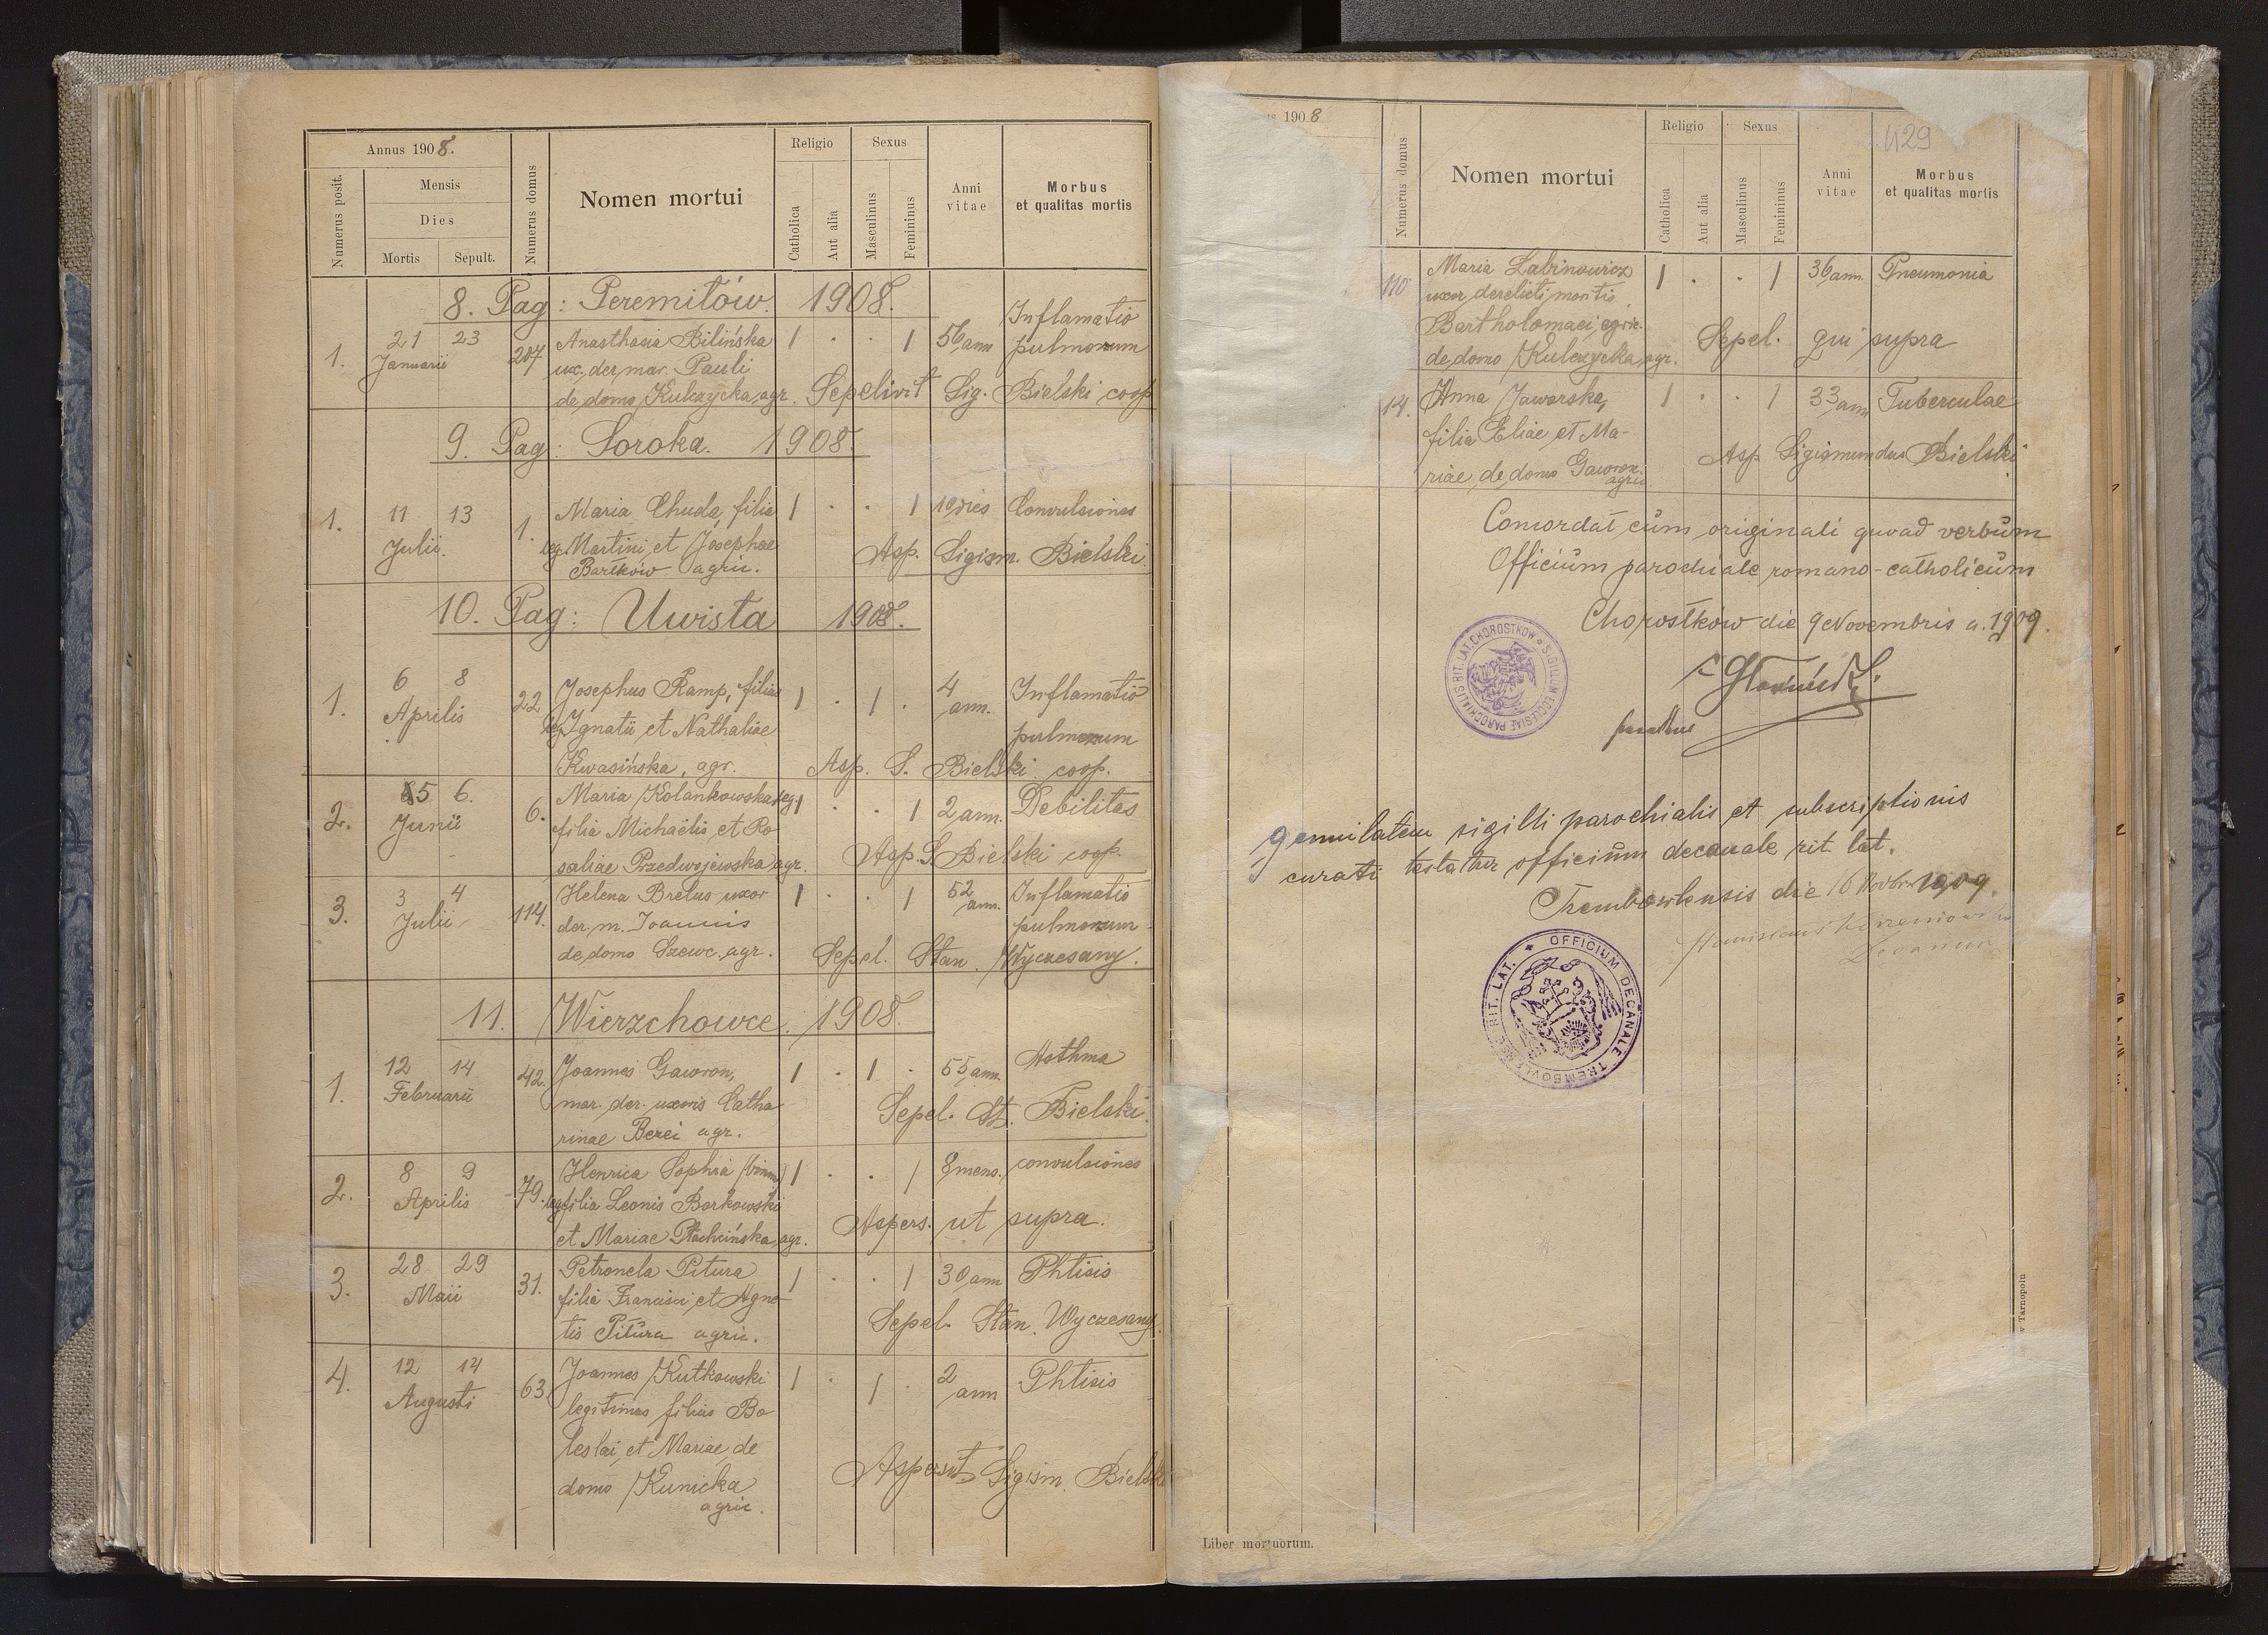 Annus 1908.
Numerus posit.
Mensis
Dies
Mortis
Sepult.
Numerus domus
Nomen mortui
Religio
Catholica
Aut alia
Sexus
Masculinus
Femininus
Anni vitae
Morbus
et qualitas mortis
8. Pag: Peremilów. 1908.
1. 21 23 Januarii 207 Anasthasia Bilińska 1 . . 1 56 ann Inflamatio
ux. der. mar. Pauli pulmonum
de domo Kulczycka, agr. Sepelivit Sig. Bielski coop
9. Pag: Soroka. 1908.
1. 11 13 Julii. 1. Maria Chuda, filia 1 . . 1 10 dies Convulsiones
leg. Martini et Josephae Asp. Sigism. Bielski.
Bartków agric.
10. Pag: Uwista 1908.
1. 6 8 Aprilis 22 Josephus Ramp, filius 1 . 1 . 4 ann. Inflamatio
leg. Ignatii et Nathaliae pulmonum
Kwasińska, agr. Asp. S. Bielski coop.
2. 5 6. Junii 6. Maria Kolankowska leg. 1 . . 1 2 ann. Debilitas
filia Michaëlis et Ro
saliae Przedwojewska agr. Asp. S. Bielski coop.
3. 3 4 Julii 114. Helena Brelus uxor 1 . . 1 52 ann. Inflamatio
der. m. Joannis pulmonum
de domo Szewc. agr. Sepel. Stan. Wyczesany.
11. Wierzchowce. 1908.
1. 12 14 Februarii 42. Joannes Gaworon, 1 . 1 . 55 ann. Asthma
mar. der. uxoris Catha Sepel. St. Bielski.
rinae Berei agr.
2. 8 9 Aprilis 79. Henrica Sophia 1 . . 1 8 mens. convulsiones
leg. filia Leonis Borkowski
et Mariae agr. Aspers. ut supra.
3. 28 29 Maii 31. Petronela Pitura 1 . . 1 30 ann Phtisis
filia Francisci et Agne-
tis Pitura agric. Sepel. Stan. Wyczesany.
4. 12 14 Augusti 63. Joannes Kutkowski 1 . 1 . 2 ann Phtisis
legitimus filius Bo
leslai et Mariae de
domo Kunicka Aspersit Sigism. Bielski
agric.
1908
429
Numerus domus
Nomen mortui
Religio
Catholica
Aut alia
Sexus
Masculinus
Femininus
Anni vitae
Morbus
et qualitas mortis
110 Maria Labinowicz 1 . . 1 36 ann. Pneumonia
uxor derelicti maritis
Bartholomaei, agric. Sepel. qui supra
de domo Kulczycka, agr.
14. Anna Jaworska, 1 . . 1 33 ann Tuberculae
filia Eliae et Ma- Asp. Sigismundus Bielski
riae, de domo Gaworon.
agric.
Concordat cum originali quoad verbum
Officium parochiale romano-catholicum
Chorostków die 9 Novembris a. 1909.
SIGILLUM ECCLESIAE PAROCHIALIS RIT. LAT. CHOROSTKÓW
genuitatem sigilli parochialis et subscriptionis
curati testatur officium decanale rit. lat.
Trembowlensis die 16 Novbris 1909.
Stanislaus
Decanus
OFFICIUM DECANALE TREMBOVLENSE RIT. LAT.
Liber mortuorum.
w Tarnopolu